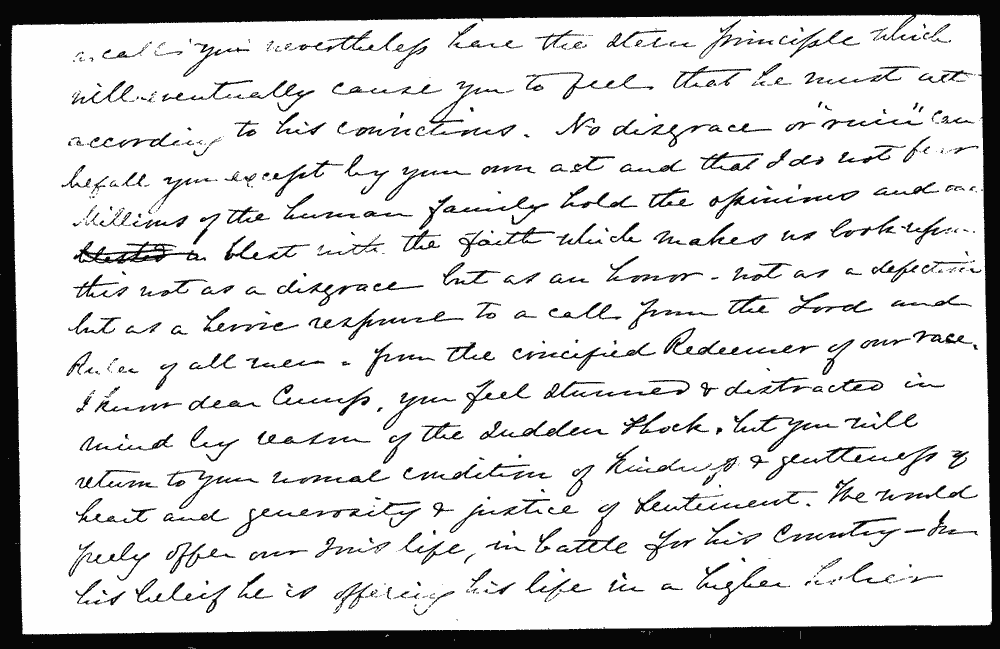 you nevertheless have the stern principle which
will eventually cause you to feel that he must act
according to his convictions. No disgrace or "ruin" can
befall you except by your own act and that I do not fear
Millions of the human family hold the opinions and are
blested blest with the faith which makes us look upon
this not as a disgrace but as an honor - not as a defection
but as a heroic response to a call from the Lord and
Ruler of all men - from the crucified Redeemer of our race.
I know dear Cump, you feel stunned & distracted in
mind by reason of the sudden shock, but you will
return to your normal condition of kindness & gentleness of
heart and generosity & justice of sentiment. We would
freely offer our Son's life, in battle for his Country - In
his beleif he is offering his life in a higher holier